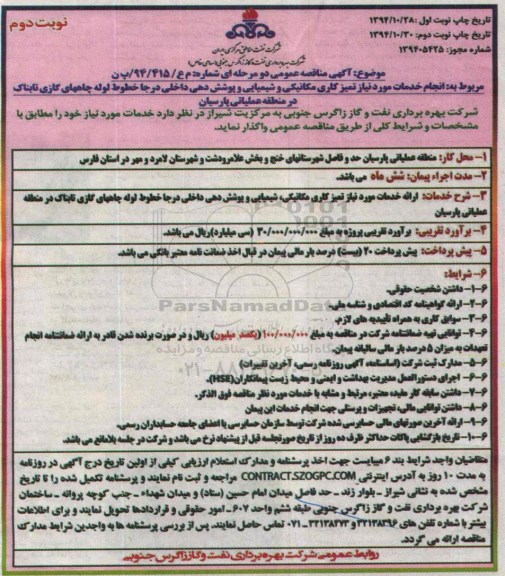 نوبت دوم
تاریخ چاپ نوبت اول: ۱۳۹۴/۱۰/۲۸
تاریخ چاپ نوبت دوم: ۱۳۹۴/۱۰/۳۰
شماره مجوز: ۱۳۹۴۰۵۴۲۵
شرکت نفت مناطق مرکزی ایران
شرکت بهره برداری نفت و گاز زاگرس جنوبی (سهامی خاص)
موضوع: آگهی مناقصه عمومی دو مرحله ای شماره: م ع/ ۹۴/۴۱۵/پ ن
مربوط به: انجام خدمات مورد نیاز تمیز کاری مکانیکی و شیمیایی و پوشش دهی داخلی درجا خطوط لوله چاههای گازی تابناک
در منطقه عملیاتی پارسیان
شرکت بهره برداری نفت و گاز زاگرس جنوبی به مرکزیت شیراز در نظر دارد خدمات مورد نیاز خود را مطابق با
مشخصات و شرایط کلی از طریق مناقصه عمومی واگذار نماید.
۱- محل کار: منطقه عملیاتی پارسیان حد و فاصل شهرستانهای خنج و بخش علامرودشت و شهرستان لامرد و مهر در استان فارس
۲- مدت اجراء پیمان: شش ماه می باشد.
۳- شرح خدمات: ارائه خدمات مورد نیاز تمیز کاری مکانیکی، شیمیایی و پوشش دهی داخلی درجا خطوط لوله چاههای گازی تابناک در منطقه
عملیاتی پارسیان
۴- برآورد تقریبی: برآورد تقریبی پروژه به مبلغ ۳۰/۰۰۰/۰۰۰/۰۰۰ (سی میلیارد) ریال می باشد.
۵- پیش پرداخت: پیش پرداخت ۲۰ (بیست) درصد بار مالی پیمان در قبال اخذ ضمانت نامه معتبر بانکی می باشد.
۶- شرایط:
۶-۱- داشتن شخصیت حقوقی.
۶-۲- ارائه گواهینامه کد اقتصادی و شناسه ملی.
۶-۳- سوابق کاری به همراه تأییدیه های لازم.
۶-۴- توانایی تهیه ضمانتنامه شرکت در مناقصه به مبلغ ۱۰۰/۰۰۰/۰۰۰ (یکصد میلیون) ریال و در صورت برنده شدن قادر به ارائه ضمانتنامه انجام
تعهدات به میزان ۵ درصد بار مالی سالیانه پیمان.
۶-۵- مدارک ثبت شرکت (اساسنامه، آگهی روزنامه رسمی، آخرین تغییرات)
۶-۶- اجرای دستورالعمل مدیریت بهداشت و ایمنی و محیط زیست پیمانکاران (HSE).
۶-۷- داشتن سابقه کار مفید، معتبر، مرتبط و مشابه با خدمات مورد نظر مناقصه فوق الذکر.
۶-۸- داشتن توانایی مالی، تجهیزات و پرسنلی جهت انجام خدمات این پیمان
۶-۹- ارائه آخرین صورتهای مالی حسابرسی شده شرکت توسط سازمان حسابرسی یا اعضای جامعه حسابداران رسمی.
۶-۱۰- تاریخ بازگشایی پاکات حداکثر ظرف ده روز از تاریخ صورتجلسه قبل از پیشنهاد نرخ می باشد و شرکت در جلسه بلامانع می باشد.
متقاضیان واجد شرایط بند ۶ میبایست جهت اخذ پرسشنامه و مدارک استعلام ارزیابی کیفی از اولین تاریخ درج آگهی در روزنامه
به مدت ۱۰ روز به آدرس اینترنتی CONTRACT.SZOGPC.COM مراجعه و ثبت نام نمایند و پرسشنامه تکمیل شده را تا تاریخ
مشخص شده به نشانی شیراز – بلوار زند – حد فاصل میدان امام حسین (ستاد) و میدان شهداء – جنب کوچه پروانه – ساختمان
شرکت بهره برداری نفت و گاز زاگرس جنوبی طبقه ششم واحد ۶۰۷– امور حقوقی و قراردادها تحویل نمایند و برای اطلاعات
بیشتر با شماره تلفن های ۳۲۱۳۸۳۹۶ و ۳۲۱۳۸۳۷۳ – ۰۷۱ تماس حاصل نمایند. پس از بررسی پرسشنامه ها به واجدین شرایط مدارک
مناقصه ارائه می گردد.
روابط عمومی شرکت بهره برداری نفت و گاز زاگرس جنوبی
ParsNamadData